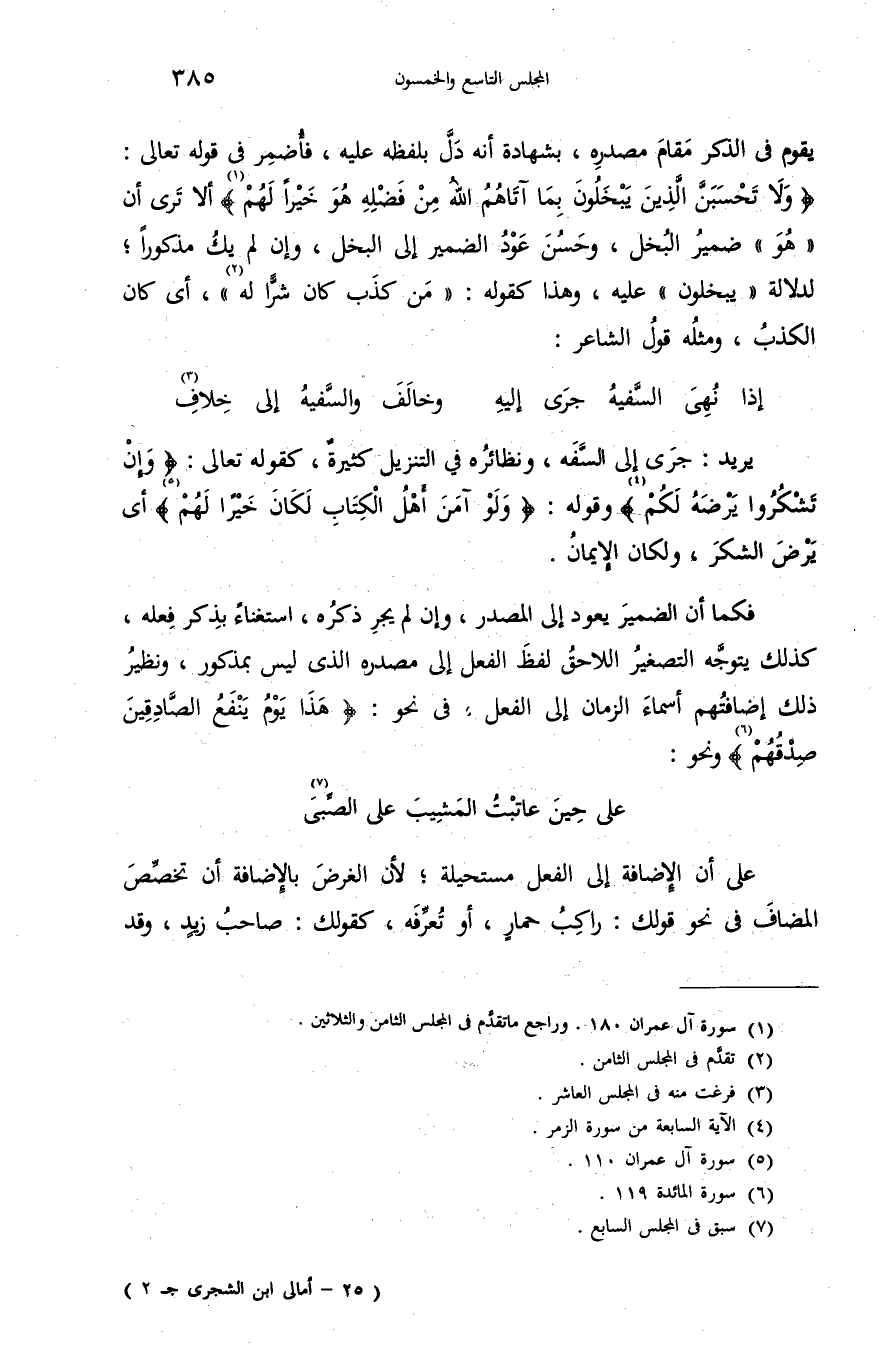 المجلس التاسع والخمسون ٣٨٥
يقوم فى الذكر مَقامَ مصدرِه ، بشهادة أنه دَلَّ بلفظه عليه ، فأُضمِر فى قوله تعالى :
﴿ وَلَا تَحْسَبَنَّ الَّذِينَ يَبْخَلُونَ بِمَا آتَاهُمُ اللهُ مِنْ فَضْلِهِ هُوَ خَيْراً لَهُمْ ﴾(١) ألا تَرى أن
« هُوَ » ضميرُ البُخل ، وحَسُنَ عَوْدُ الضمير إلى البخل ، وإن لم يكُ مذكوراً ؛
لدلالة « يبخلون » عليه ، وهذا كقوله : « مَن كذَب كان شرًّا له »(٢) ، أى كان
الكذبُ ، ومثلُه قولُ الشاعر :
إذا نُهِىَ السَّفيهُ جرَى إليهِ وخالَفَ والسَّفيهُ إلى خِلافِ(٣)
يريد : جرَى إلى السَّفَه ، ونظائرُه في التنزيل كثيرةٌ ، كقوله تعالى : ﴿ وَإِنْ
تَشْكُرُوا يَرْضَهُ لَكُمْ ﴾(٤) وقوله : ﴿ وَلَوْ آمَنَ أَهْلُ الْكِتَابِ لَكَانَ خَيْرًا لَهُمْ ﴾(٥) أى
يَرْضَ الشكرَ ، ولكان الإِيمانُ .
فكما أن الضميرَ يعود إلى المصدر ، وإن لم يجرِ ذكرُه ، استغناءً بذِكر فِعله ،
كذلك يتوجَّه التصغيرُ اللاحقُ لفظَ الفعل إلى مصدره الذى ليس بمذكور ، ونظيرُ
ذلك إضافتُهم أسماءَ الزمان إلى الفعل ، فى نحو : ﴿ هَذَا يَوْمُ يَنْفَعُ الصَّادِقِينَ
صِدْقُهُمْ ﴾(٦) ونحو :
على حِينَ عاتبْتُ المَشِيبَ على الصِّبَى(٧)
على أن الإِضافة إلى الفعل مستحيلة ؛ لأن الغرضَ بالإِضافة أن تخصِّصَ
المضافَ فى نحو قولك : راكِبُ حمارٍ ، أو تُعرِّفَه ، كقولك : صاحبُ زيدٍ ، وقد
(١) سورة آل عمران ١٨٠ . وراجع ماتقدَّم فى المجلس الثامن والثلاثين .
(٢) تقدَّم فى المجلس الثامن .
(٣) فرغت منه فى المجلس العاشر .
(٤) الآية السابعة من سورة الزمر .
(٥) سورة آل عمران ١١٠ .
(٦) سورة المائدة ١١٩ .
(٧) سبق فى المجلس السابع .
( ٢٥ – أمالى ابن الشجرى جـ ٢ )